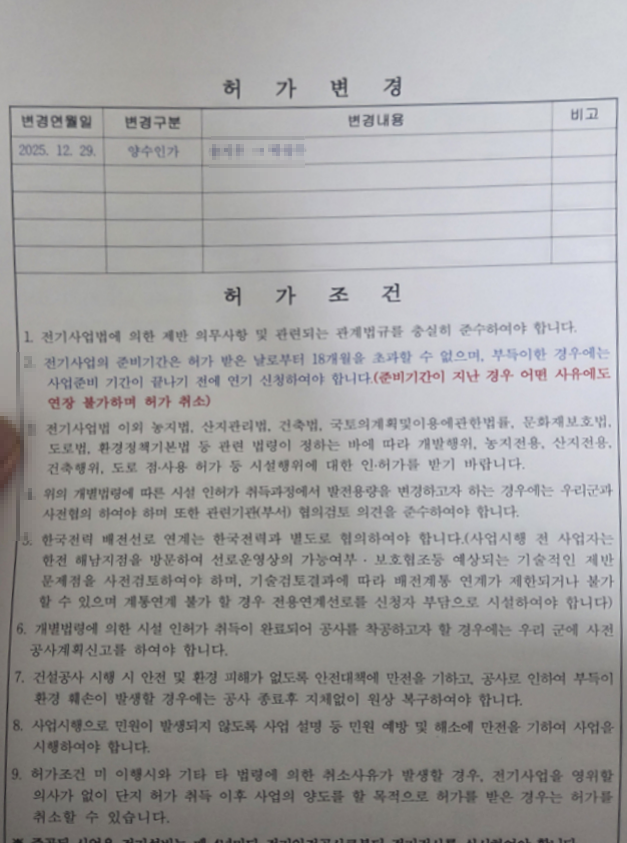 허 가 변 경
변경연월일 변경구분 변경내용 비고
2025. 12. 29. 양수인가
허 가 조 건
1. 전기사업법에 의한 제반 의무사항 및 관련되는 관계법규를 충실히 준수하여야 합니다.
전기사업의 준비기간은 허가 받은 날로부터 18개월을 초과할 수 없으며, 부득이한 경우에는
사업준비 기간이 끝나기 전에 연기 신청하여야 합니다.(준비기간이 지난 경우 어떤 사유에도
연장 불가하며 허가 취소)
전기사업법 이외 농지법, 산지관리법, 건축법, 국토의계획및이용에관한법률, 문화재보호법,
도로법, 환경정책기본법 등 관련 법령이 정하는 바에 따라 개발행위, 농지전용, 산지전용,
건축행위, 도로 점·사용 허가 등 시설행위에 대한 인·허가를 받기 바랍니다.
위의 개별법령에 따른 시설 인허가 취득과정에서 발전용량을 변경하고자 하는 경우에는 우리군과
사전협의 하여야 하며 또한 관련기관(부서) 협의검토 의견을 준수하여야 합니다.
5. 한국전력 배전선로 연계는 한국전력과 별도로 협의하여야 합니다.(사업시행 전 사업자는
한전 해남지점을 방문하여 선로운영상의 가능여부·보호협조등 예상되는 기술적인 제반
문제점을 사전검토하여야 하며, 기술검토결과에 따라 배전계통 연계가 제한되거나 불가
할 수 있으며 계통연계 불가 할 경우 전용연계선로를 신청자 부담으로 시설하여야 합니다)
6. 개별법령에 의한 시설 인허가 취득이 완료되어 공사를 착공하고자 할 경우에는 우리 군에 사전
공사계획신고를 하여야 합니다.
7. 건설공사 시행 시 안전 및 환경 피해가 없도록 안전대책에 만전을 기하고, 공사로 인하여 부득이
환경 훼손이 발생할 경우에는 공사 종료후 지체없이 원상 복구하여야 합니다.
8. 사업시행으로 민원이 발생되지 않도록 사업 설명 등 민원 예방 및 해소에 만전을 기하여 사업을
시행하여야 합니다.
9. 허가조건 미 이행시와 기타 타 법령에 의한 취소사유가 발생할 경우, 전기사업을 영위할
의사가 없이 단지 허가 취득 이후 사업의 양도를 할 목적으로 허가를 받은 경우는 허가를
취소할 수 있습니다.